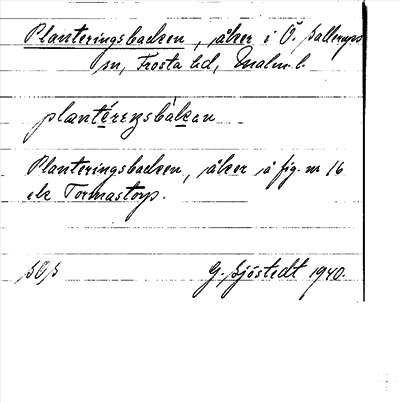 Planteringsbacken, åker i Ö. Sallerups
sn, Frosta hd, Malm. l.
planté̱rengsbàkan
Planteringsbacken, åker å fig. nr 16
ek Tormastorp.
G. Sjöstedt 1940.